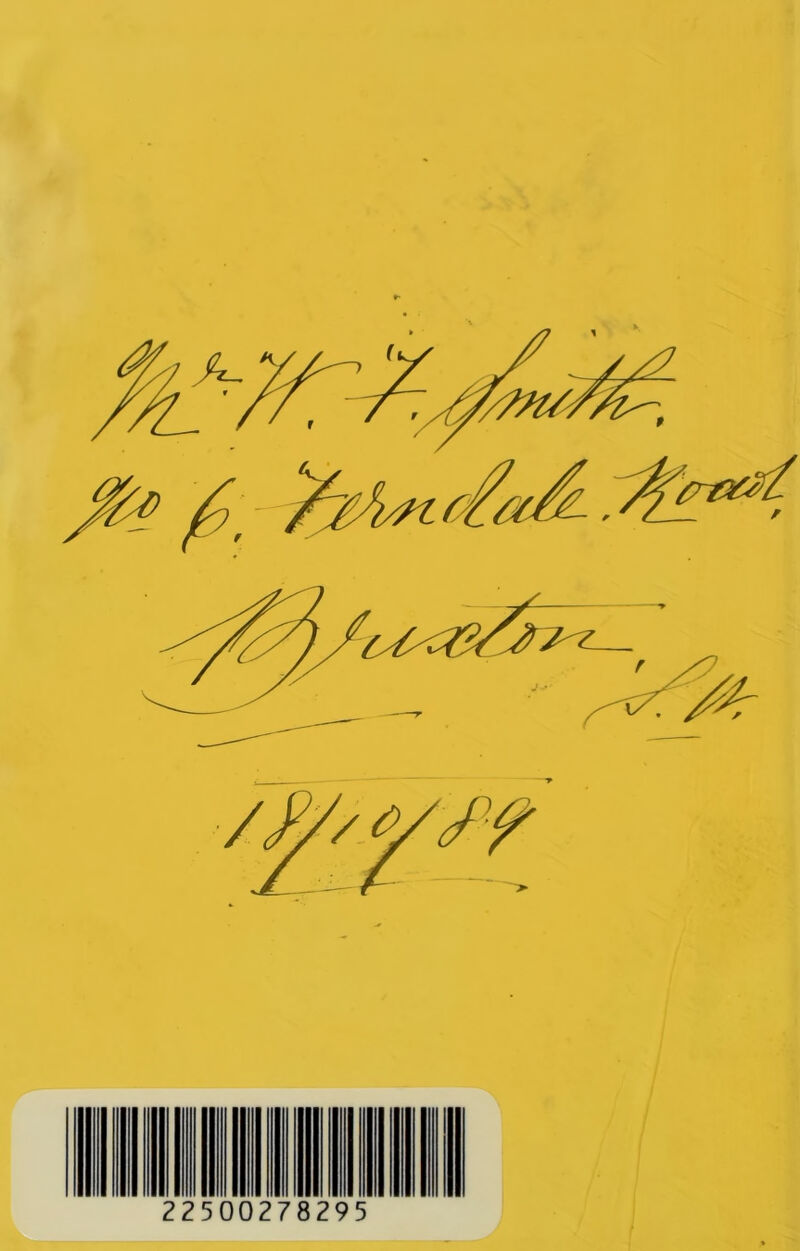 Mr. W. F. Smith.
No 6. Ferndale Road,
Brixton,
S.W.
18/10/89
22500278295